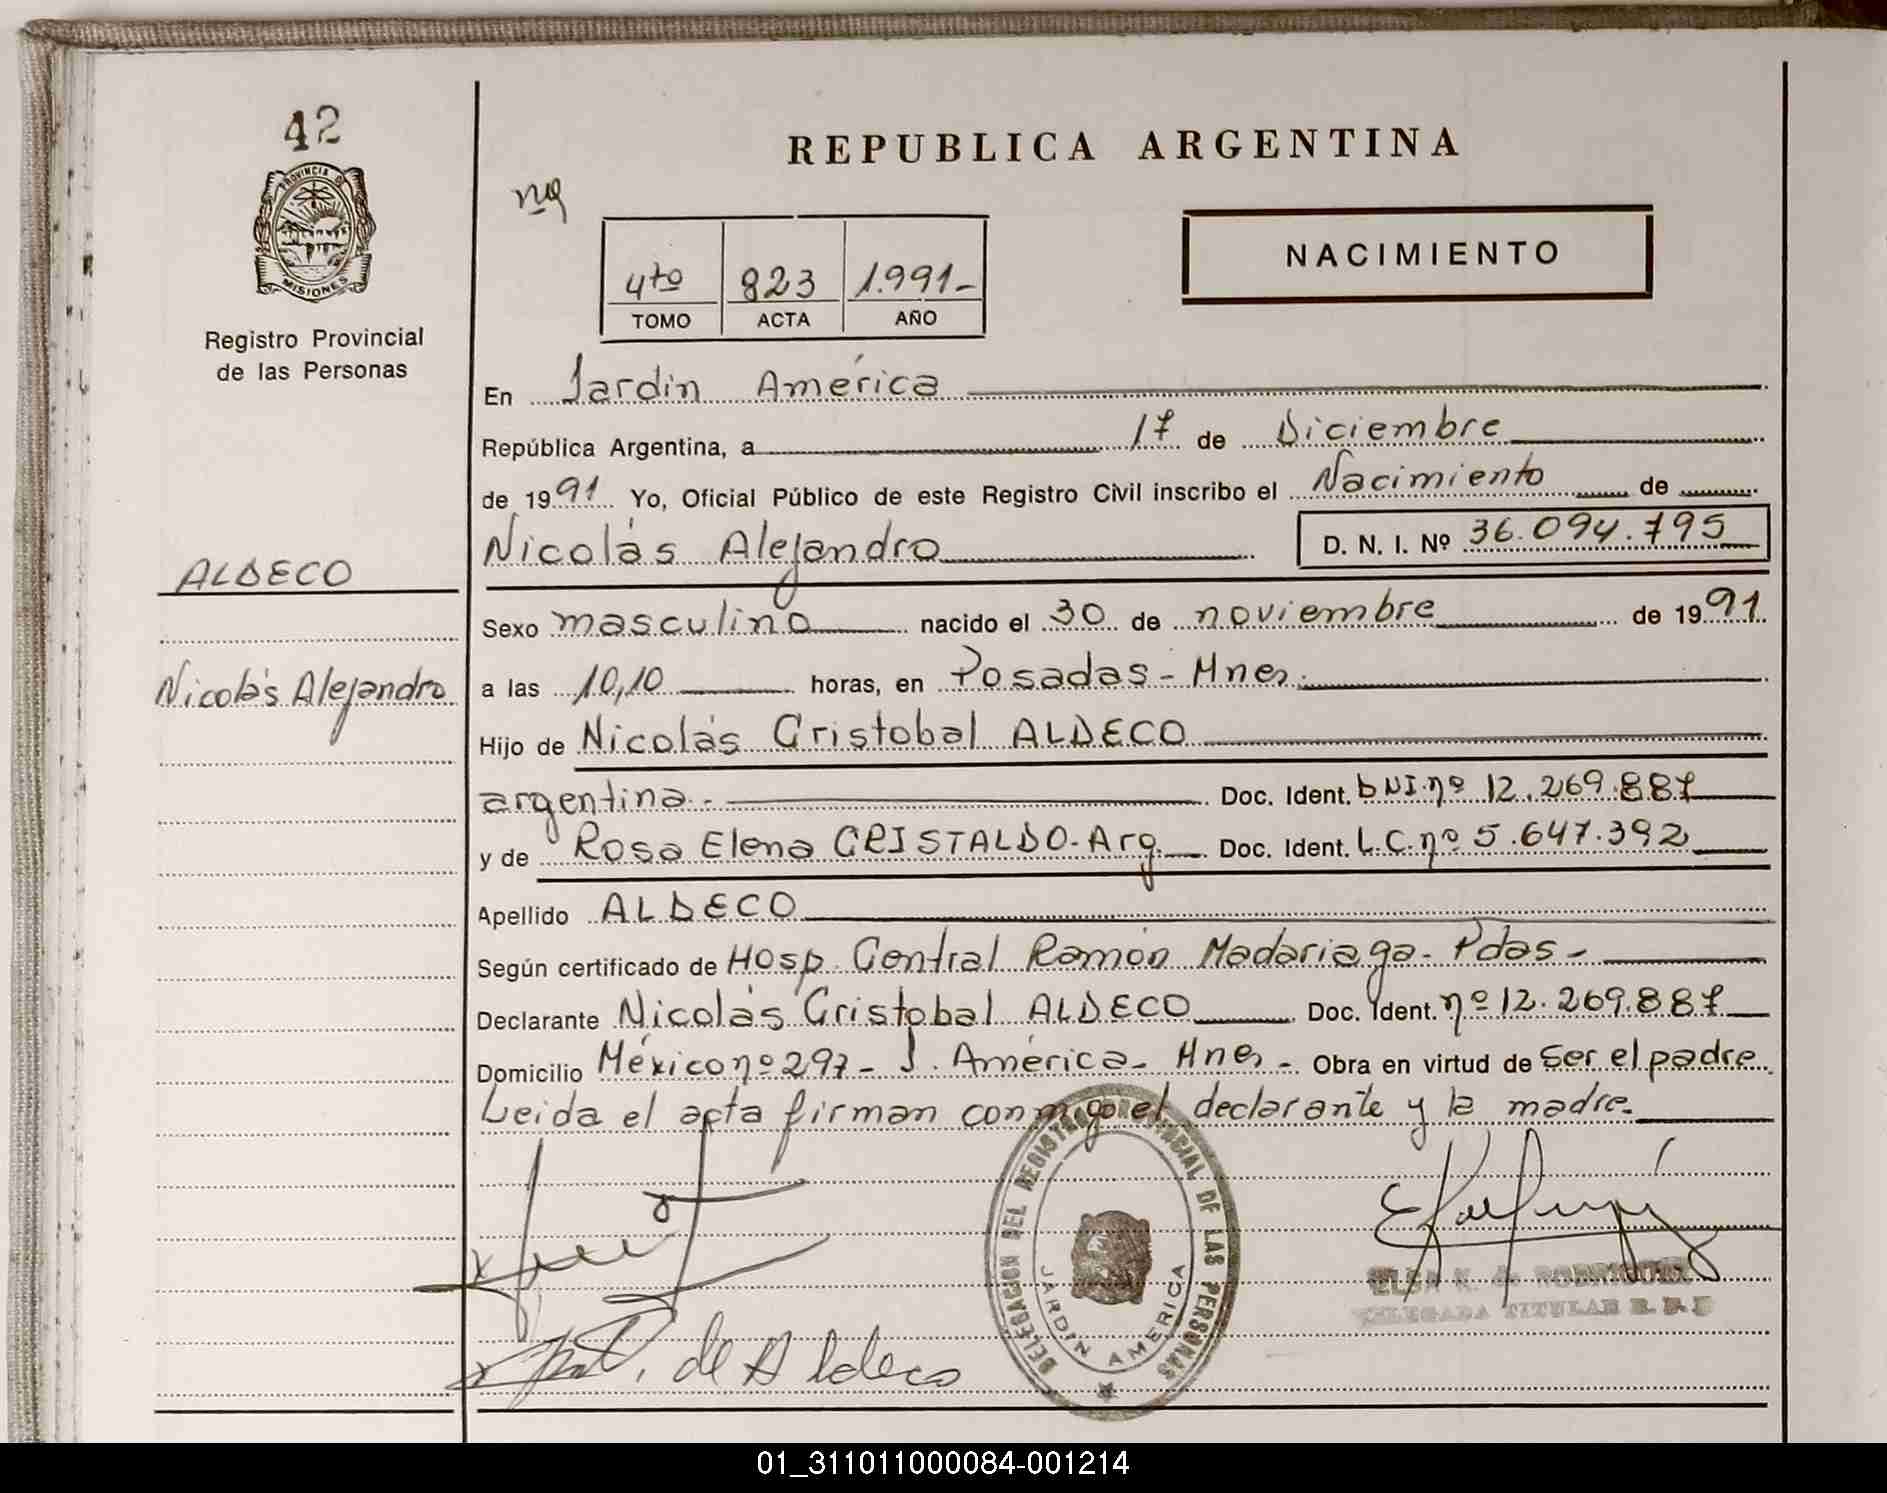 42
PROVINCIA DE
MISIONES
Registro Provincial
de las Personas
ALDECO
Nicolás Alejandro
REPUBLICA ARGENTINA
NACIMIENTO
4to 823 1.991-
TOMO ACTA AÑO
En Jardín América
República Argentina, a 17 de Diciembre
de 1991 Yo, Oficial Público de este Registro Civil inscribo el Nacimiento de
Nicolás Alejandro D. N. I. Nº 36.094.795
Sexo masculino nacido el 30 de noviembre de 1991
a las 10,10 horas, en Posadas - Mnes.
Hijo de Nicolás Cristobal ALDECO
argentina.- Doc. Ident. DNI.nº 12.269.887
y de Rosa Elena CRISTALDO-Arg. Doc. Ident. L.C.nº 5.647.392
Apellido ALDECO
Según certificado de Hosp. Central Ramón Madariaga - Pdas -
Declarante Nicolás Cristobal ALDECO Doc. Ident. nº 12.269.887
Domicilio México nº 297 - J. América - Mnes - Obra en virtud de Ser el padre
Leida el acta firman conmigo el declarante y la madre.
DELEGACION DEL REGISTRO PROVINCIAL DE LAS PERSONAS
JARDIN AMERICA
ELSA K. de RODRIGUEZ
DELEGADA TITULAR R. P. P
de Aldeco
01_311011000084-001214